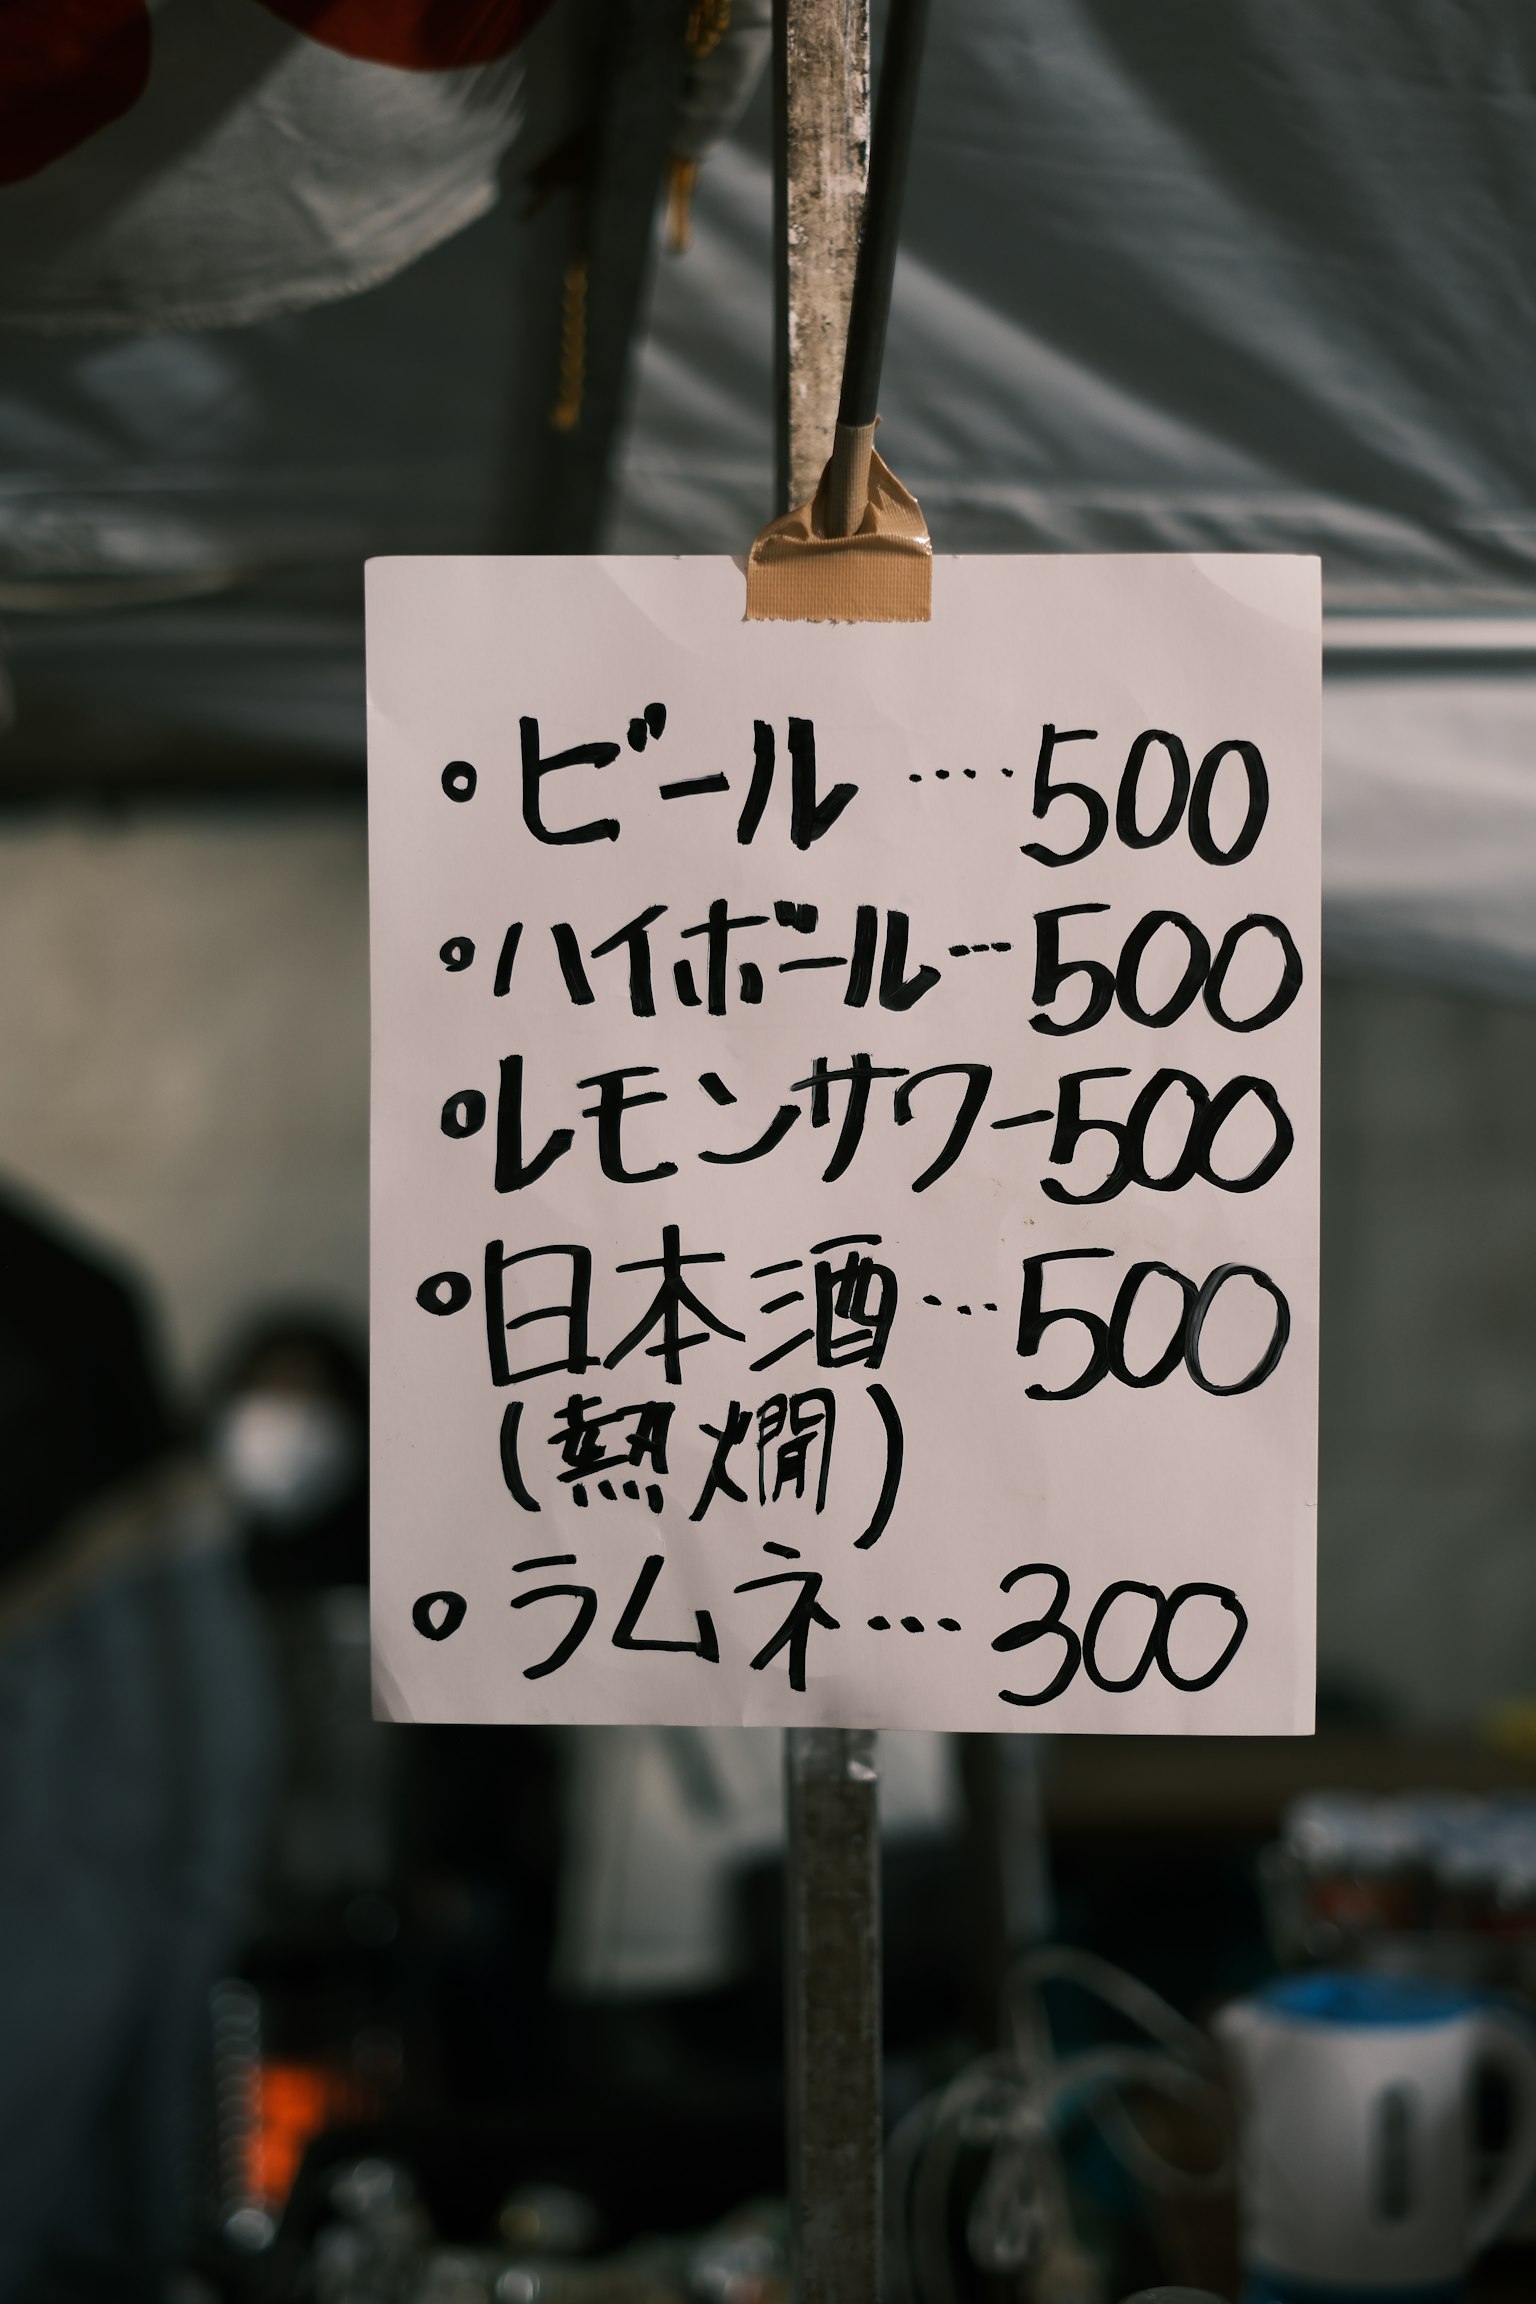 。ビール ····500
。ハイボール···500
。レモンサワー500
。日本酒···500
(熱燗)
。ラムネ···300